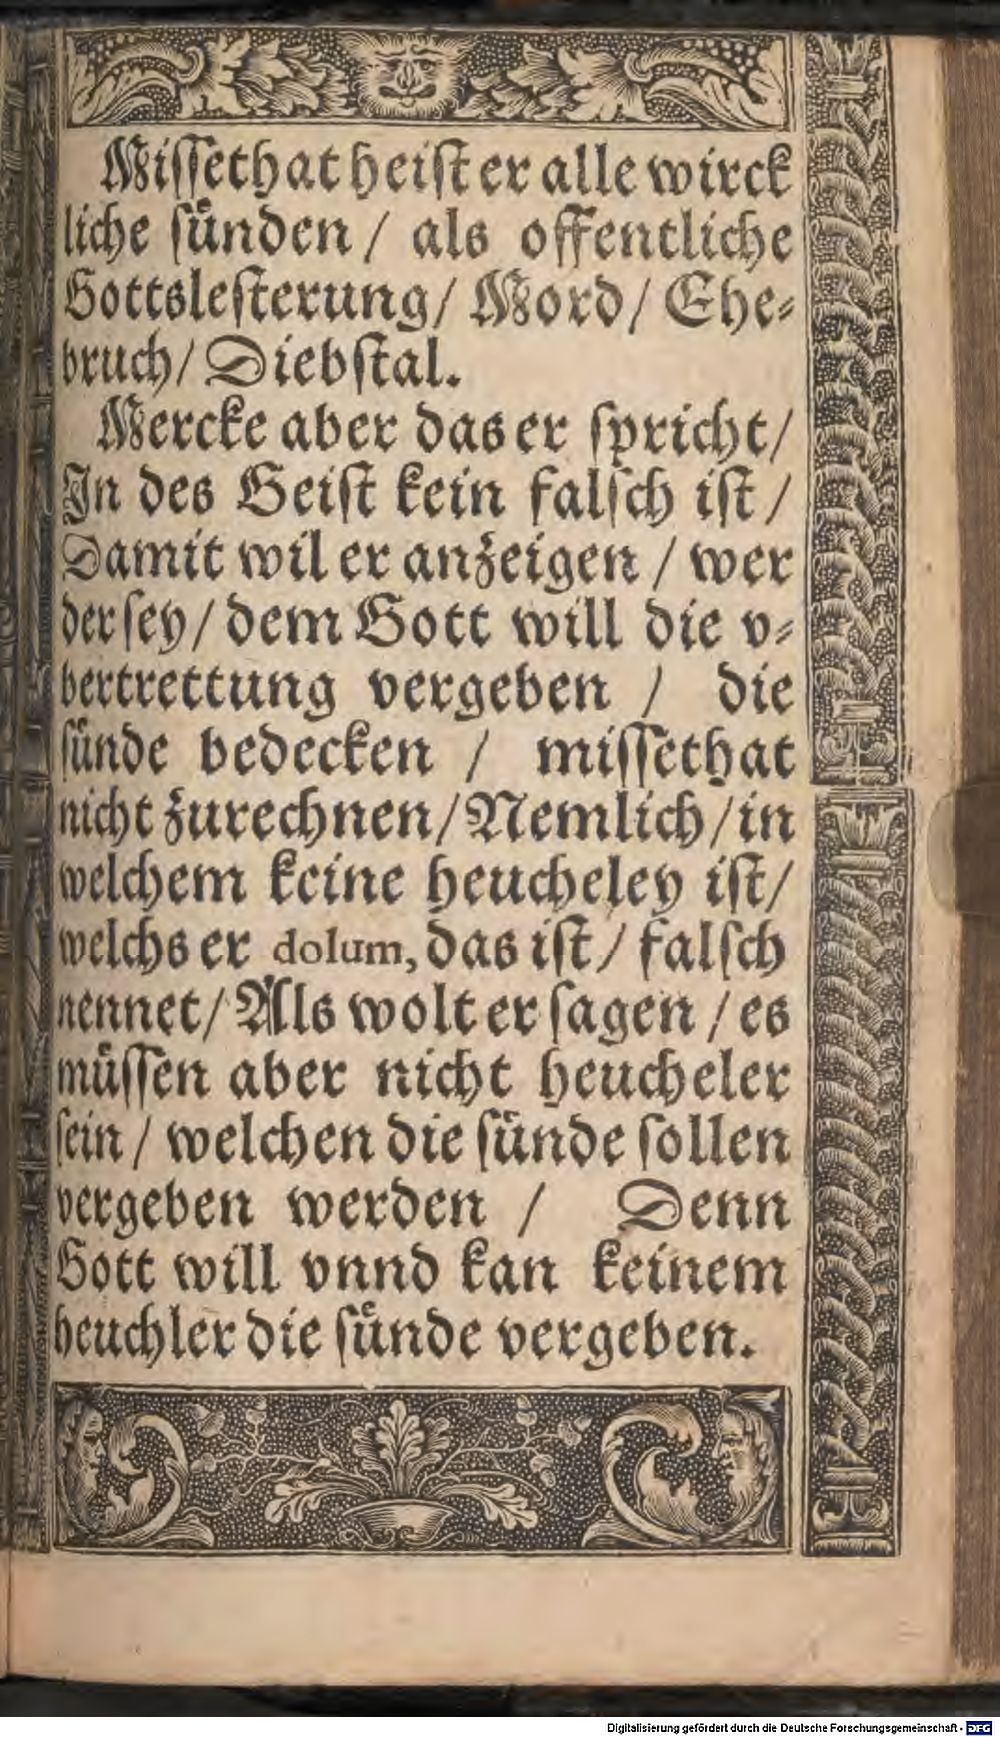 Missethat heist er alle wirck
liche sünden / als offentliche
Gottslesterung / Mord / Ehe⸗
bruch / Diebstal.
Mercke aber das er spricht /
In des Geist kein falsch ist /
Damit wil er anzeigen / wer
der sey / dem Gott will die v⸗
bertrettung vergeben / die
sünde bedecken / missethat
nicht zurechnen / Nemlich / in
welchem keine heucheley ist /
welchs er dolum, das ist / falsch
nennet / Als wolt er sagen / es
müssen aber nicht heucheler
sein / welchen die sünde sollen
vergeben werden / Denn
Gott will vnnd kan keinem
heuchler die sünde vergeben.
Digitalisierung gefördert durch die Deutsche Forschungsgemeinschaft - DFG